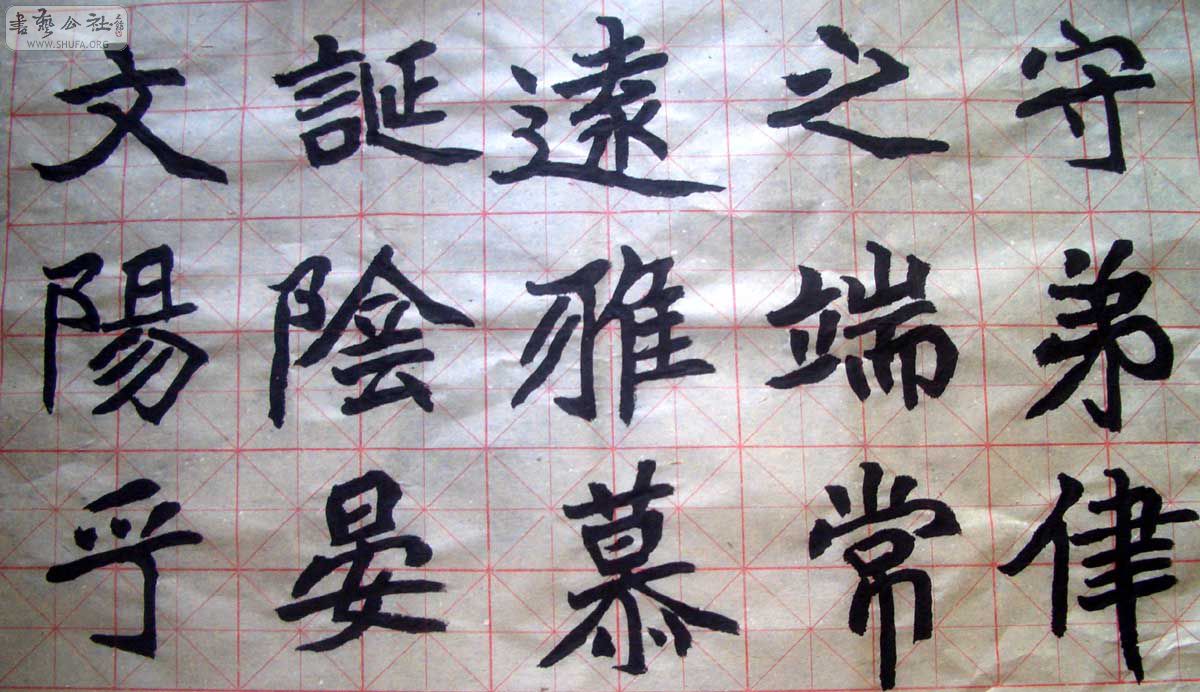 守弟侓
之端常
遠雅慕
誕陰晏
文陽乎
書藝公社
WWW.SHUFA.ORG